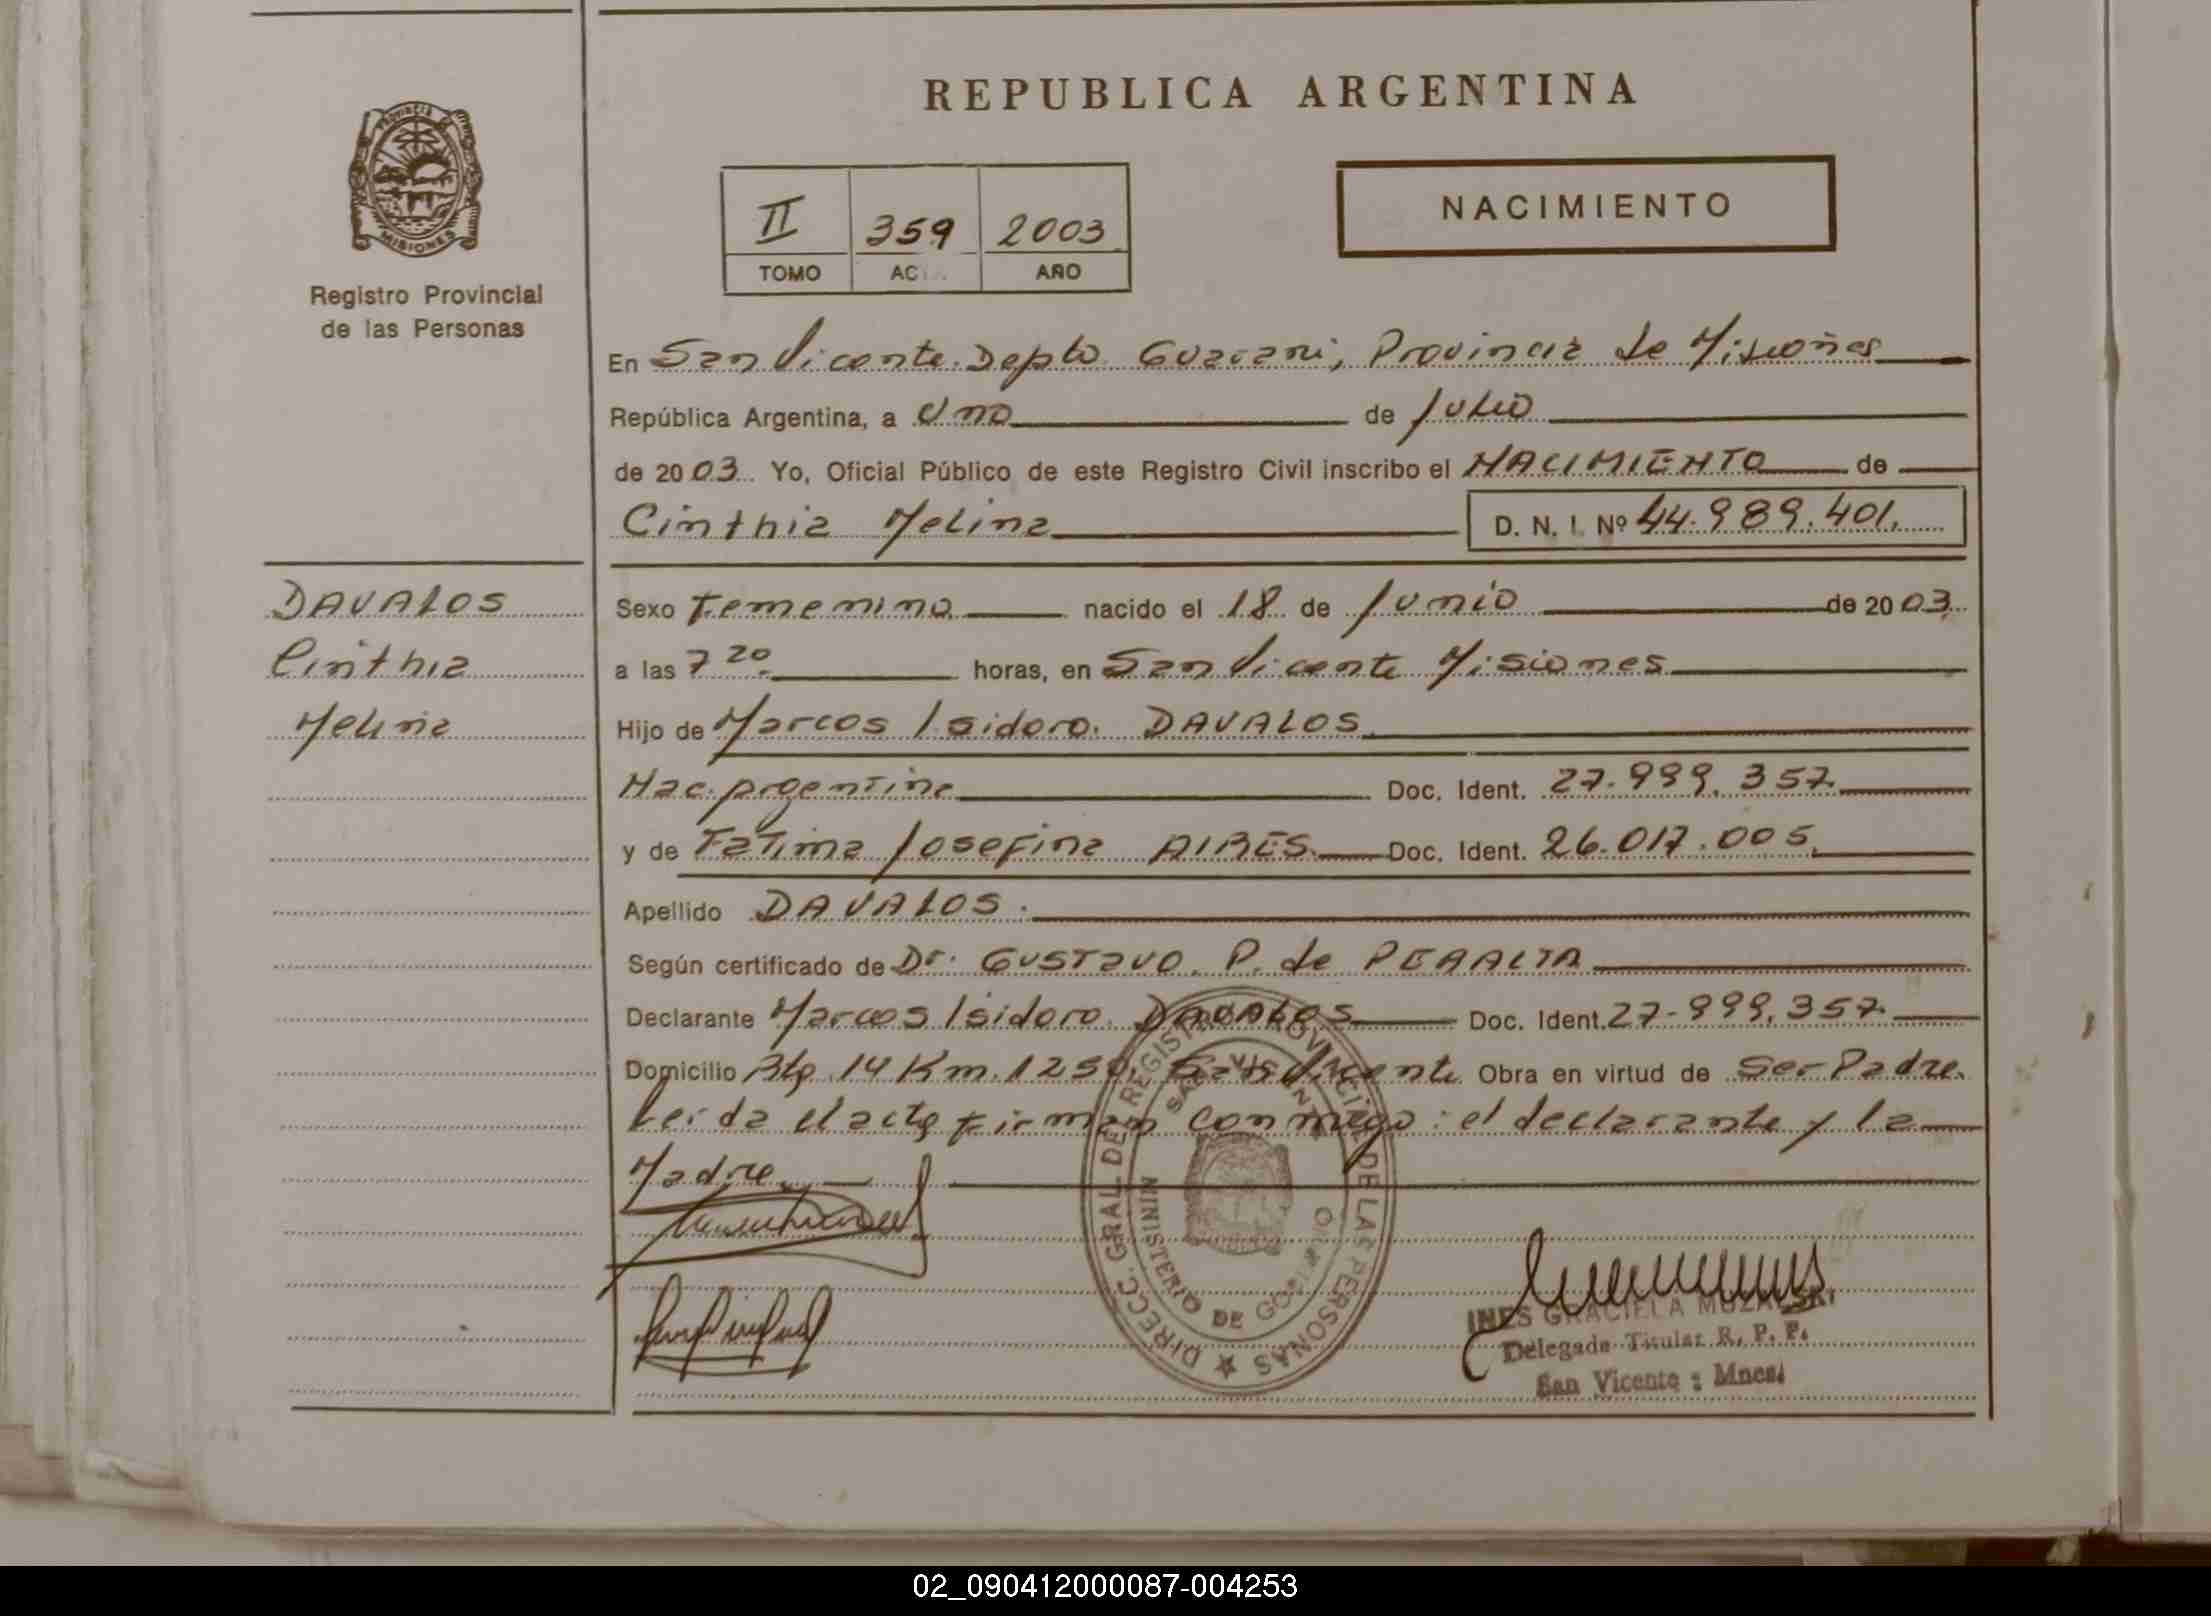 REPUBLICA ARGENTINA
PROVINCIA DE
MISIONES
Registro Provincial
de las Personas
II 359 2003
TOMO AC AÑO
NACIMIENTO
En San Vicente. Depto Guarani, Provincia de Misiones
República Argentina, a Uno de Julio
de 2003. Yo, Oficial Público de este Registro Civil inscribo el NACIMIENTO de
Cinthia Melina D. N. I. Nº 44.989.401.
DAVALOS
Cinthia
Melina
Sexo Femenino nacido el 18 de Junio de 2003.
a las 7 20 horas, en San Vicente Misiones
Hijo de Marcos Isidoro. DAVALOS
Nac. argentina Doc. Ident. 27.999.357.
y de Fatima Josefina AIRES. Doc. Ident. 26.017.005.
Apellido DAVALOS.
Según certificado de Dr. GUSTAVO. P. de PERALTA
Declarante Marcos Isidoro. DAVALOS Doc. Ident. 27.999.357.
Domicilio Rta 14 Km. 1250. San Vicente Obra en virtud de Ser Padre.
Leida el acta firman conmigo: el declarante y la
Madre.
DIRECC. GRAL DEL REGISTRO PROVINCIAL DE LAS PERSONAS
SAN VICENTE
MINISTERIO DE GOBIERNO
INES GRACIELA
Delegada Titular R. P. P.
San Vicente : Mnes.
02_090412000087-004253